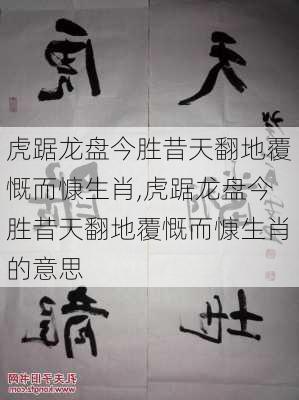 虎 天
虎踞龙盘今胜昔天翻地覆
慨而慷生肖,虎踞龙盘今
胜昔天翻地覆慨而慷生肖
的意思
地